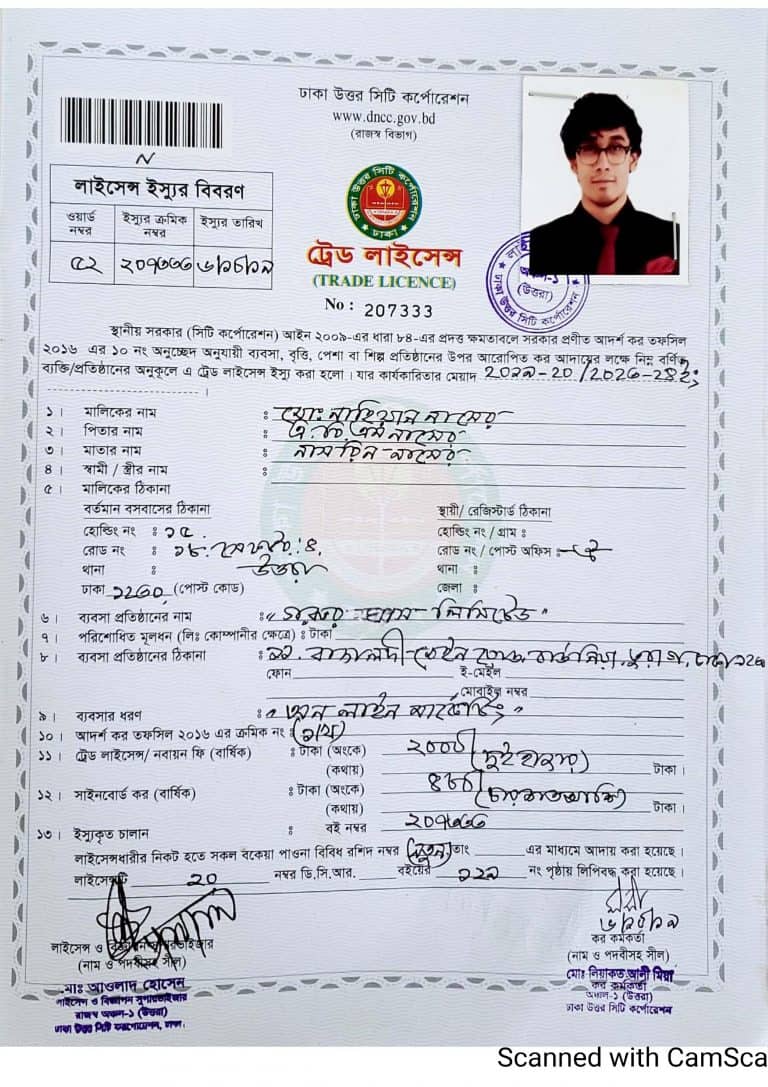 ঢাকা উত্তর সিটি কর্পোরেশন
www.dncc.gov.bd
(রাজস্ব বিভাগ)
N
লাইসেন্স ইস্যুর বিবরণ
ওয়ার্ড নম্বর ইস্যুর ক্রমিক নম্বর ইস্যুর তারিখ
৫২ ২০৭৩৩৩
ঢাকা উত্তর সিটি কর্পোরেশন
ঢাকা
ট্রেড লাইসেন্স
(TRADE LICENCE)
No : 207333
অঞ্চল-১
(উত্তরা)
ঢাকা উত্তর সিটি কর্পোরেশন
স্থানীয় সরকার (সিটি কর্পোরেশন) আইন ২০০৯-এর ধারা ৮৪-এর প্রদত্ত ক্ষমতাবলে সরকার প্রণীত আদর্শ কর তফসিল
২০১৬ এর ১০ নং অনুচ্ছেদ অনুযায়ী ব্যবসা, বৃত্তি, পেশা বা শিল্প প্রতিষ্ঠানের উপর আরোপিত কর আদায়ের লক্ষে নিম্ন বর্ণিত
ব্যক্তি/প্রতিষ্ঠানের অনুকূলে এ ট্রেড লাইসেন্স ইস্যু করা হলো। যার কার্যকারিতার মেয়াদ
১। মালিকের নাম : মোঃ নাহিয়ান নাসের
২। পিতার নাম : এ.বি.এম নাসের
৩। মাতার নাম : নাসরিন নাসের
৪। স্বামী / স্ত্রীর নাম :
৫। মালিকের ঠিকানা
বর্তমান বসবাসের ঠিকানা স্থায়ী/ রেজিস্টার্ড ঠিকানা
হোল্ডিং নং : ১৫. হোল্ডিং নং / গ্রাম :
রোড নং : ১৮. সেক্টর: ৪. রোড নং / পোস্ট অফিস : ঐ
থানা : উত্তরা থানা :
ঢাকা ১২৩০ (পোস্ট কোড) জেলা :
৬। ব্যবসা প্রতিষ্ঠানের নাম : লিমিটেড"
৭। পরিশোধিত মূলধন (লিঃ কোম্পানীর ক্ষেত্রে) : টাকা
৮। ব্যবসা প্রতিষ্ঠানের ঠিকানা : মেইন রোড তুরাগ, ঢাকা
ফোন ই-মেইল
মোবাইল নম্বর
৯। ব্যবসার ধরণ : "অন লাইন মার্কেটিং"
১০। আদর্শ কর তফসিল ২০১৬ এর ক্রমিক নং :
১১। ট্রেড লাইসেন্স/ নবায়ন ফি (বার্ষিক) : টাকা (অংকে) ২০০০/
(কথায়) (দুই হাজার) টাকা।
১২। সাইনবোর্ড কর (বার্ষিক) : টাকা (অংকে) ৪৮০/
(কথায়) (চারশতআশি) টাকা।
১৩। ইস্যুকৃত চালান : বই নম্বর ২০৭৩৩৩
লাইসেন্সধারীর নিকট হতে সকল বকেয়া পাওনা বিবিধ রশিদ নম্বর (নতুন) তাং এর মাধ্যমে আদায় করা হয়েছে।
লাইসেন্সটি ২০ নম্বর ডি.সি.আর. বইয়ের ১২৯ নং পৃষ্ঠায় লিপিবদ্ধ করা হয়েছে।
লাইসেন্স ও
(নাম ও পদবীসহ সীল)
কর কর্মকর্তা
(নাম ও পদবীসহ সীল)
মোঃ আওলাদ হোসেন
লাইসেন্স ও বিজ্ঞাপন সুপারভাইজার
রাজস্ব অঞ্চল-১ (উত্তরা)
ঢাকা উত্তর সিটি করপোরেশন, ঢাকা।
মোঃ লিয়াকত আলী মিয়া
কর কর্মকর্তা
অঞ্চল-১ (উত্তরা)
ঢাকা উত্তর সিটি কর্পোরেশন
Scanned with CamSca